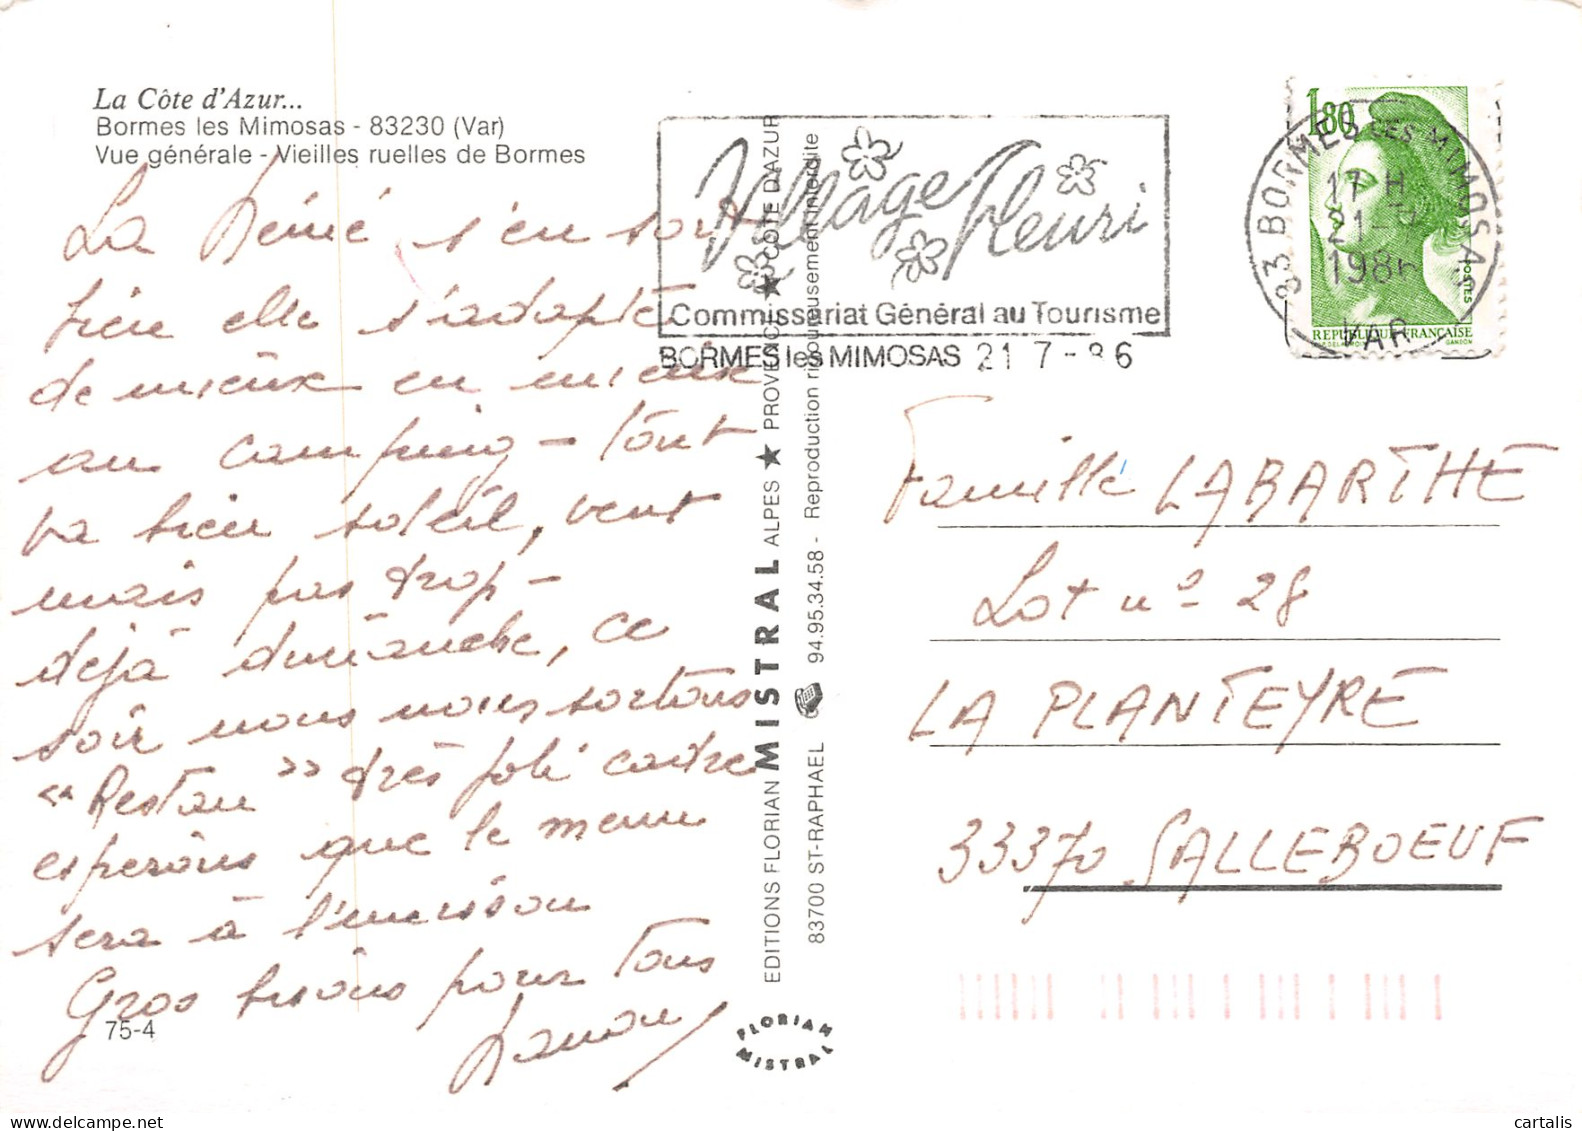 La Côte d'Azur...
Bormes les Mimosas - 83230 (Var)
Vue générale - Vieilles ruelles de Bormes
La Mémé s'en sort
bien elle s'adapte
de mieux en mieux
au camping - tout
va bien soleil, vent
mais pas trop -
déjà dimanche, ce
soir nous nous sortons
"Restau" très joli cadre
esperons que le menu
sera à l'unisson
Gros bisous pour Tous
75-4
EDITIONS FLORIAN MISTRAL ALPES ★ PROVENCE ★ CÔTE D'AZUR
83700 ST-RAPHAEL 94.95.34.58 - Reproduction rigoureusement interdite
FLORIAN
MISTRAL
Village fleuri
Commissariat Général au Tourisme
BORMES les MIMOSAS 21 7 - 86
1,80
POSTES
REPUBLIQUE FRANÇAISE
GANDON
83 BORMES LES MIMOSAS
17 H
21 - 7
1986
VAR
Famille LABARTHE
Lot nº 28
LA PLANTEYRE
33370 SALLEBOEUF
cartalis